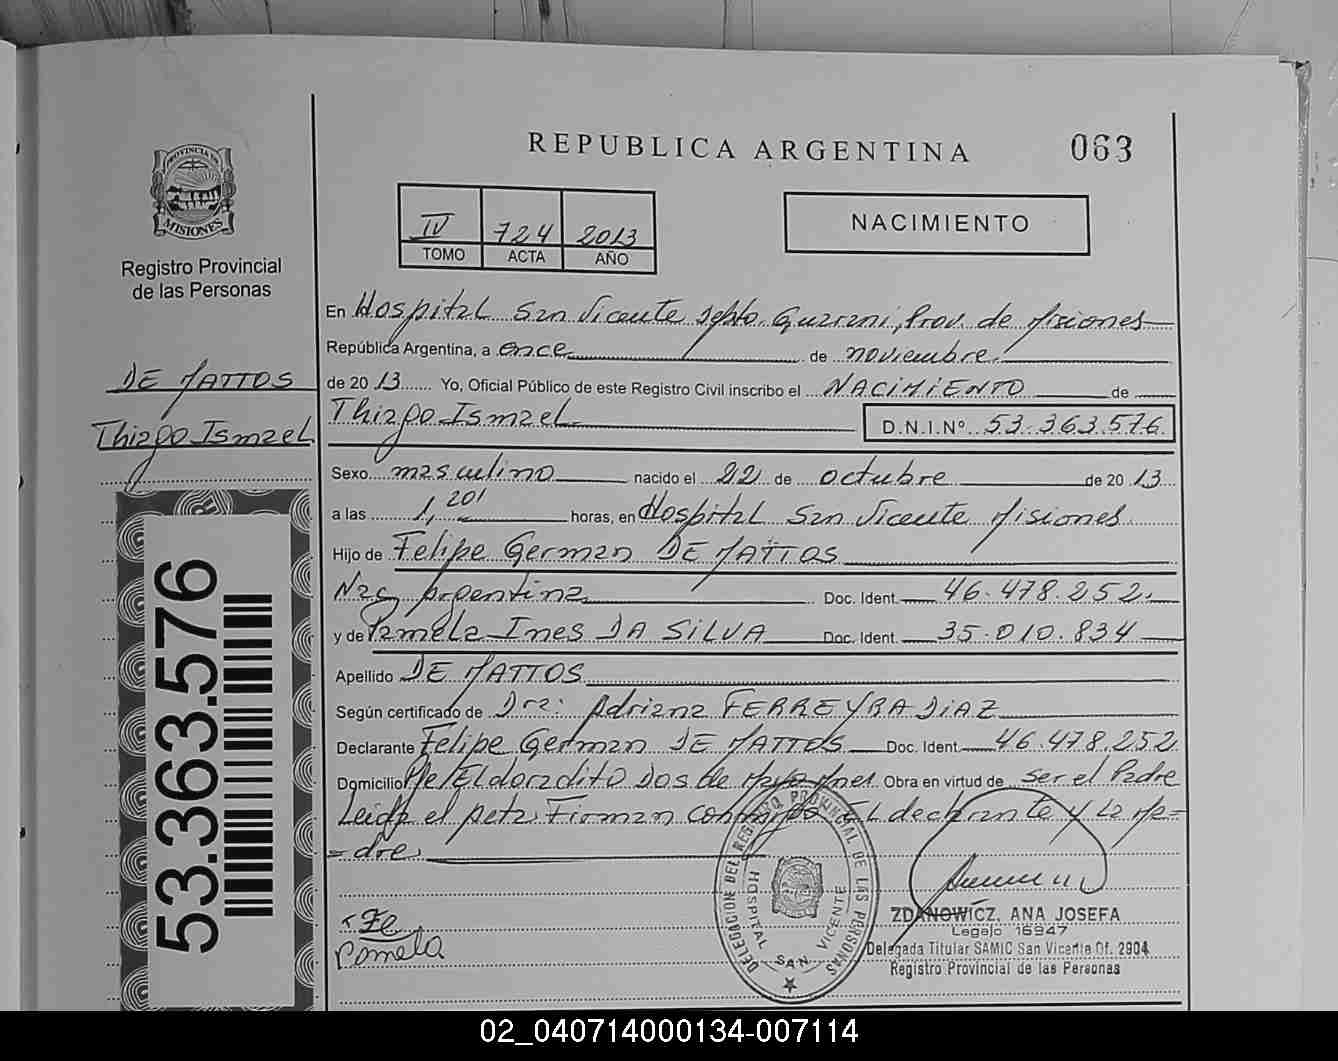 REPUBLICA ARGENTINA
063
PROVINCIA DE MISIONES
Registro Provincial
de las Personas
IV 724 2013
TOMO ACTA AÑO
NACIMIENTO
DE MATTOS
Thiago Ismael
53.363.576
En Hospital San Vicente Dpto. Guarani, Prov. de Misiones
República Argentina, a once de noviembre
de 2013 Yo, Oficial Público de este Registro Civil inscribo el NACIMIENTO de
Thiago Ismael D.N.I.Nº 53.363.576
Sexo masculino nacido el 22 de octubre de 2013
a las 1,20 horas, en Hospital San Vicente Misiones
Hijo de Felipe German DE MATTOS
Nac. Argentina Doc. Ident. 46.478.252
y de Pamela Ines DA SILVA Doc. Ident. 35.010.834
Apellido DE MATTOS
Según certificado de Dra: Adriana FERREYRA DIAZ
Declarante Felipe German DE MATTOS Doc. Ident. 46.478.252
Domicilio Eldoradito Dos de Mayo Mnes Obra en virtud de ser el Padre
Leida el acta Firman conmigo el declarante y La Ma-
-dre
Pamela
DELEGACION DEL REGISTRO PROVINCIAL DE LAS PERSONAS
HOSPITAL SAN VICENTE
ZDANOWICZ, ANA JOSEFA
Legajo 16947
Delegada Titular SAMIC San Vicente Of. 2904
Registro Provincial de las Personas
02_040714000134-007114